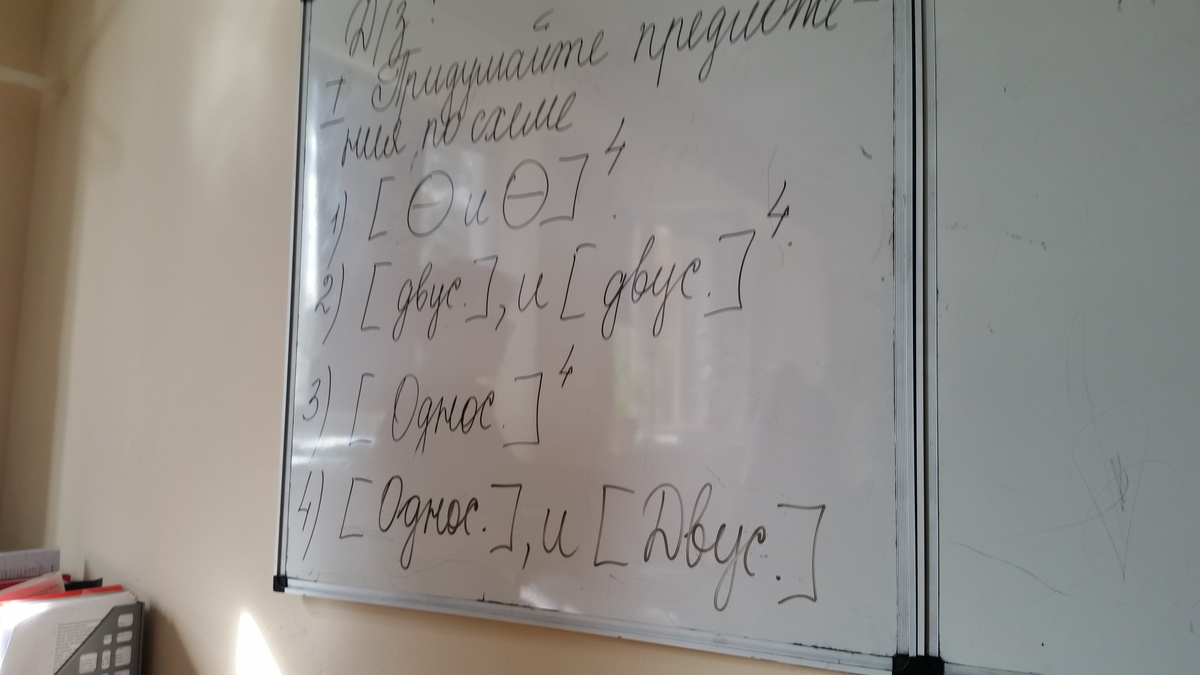 Д/з:
I Придумайте предложе-
ния по схеме
1) [ ⊖ и ⊖ ]⁴.
2) [двус.], и [двус.]⁴.
3) [Однос.]⁴
4) [Однос.], и [Двус.]